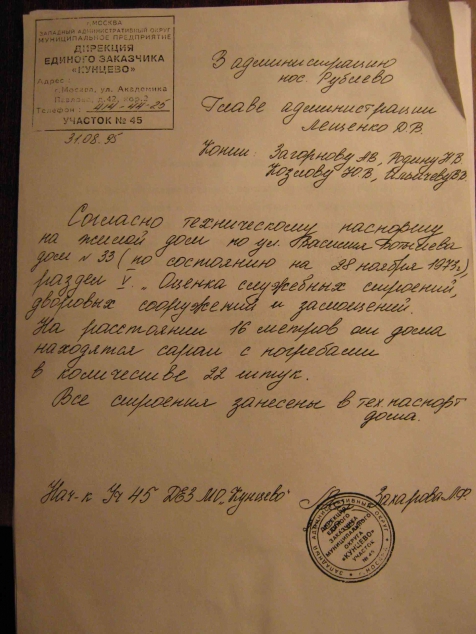 г. МОСКВА
ЗАПАДНЫЙ АДМИНИСТРАТИВНЫЙ ОКРУГ
МУНИЦИПАЛЬНОЕ ПРЕДПРИЯТИЕ
ДИРЕКЦИЯ
ЕДИНОГО ЗАКАЗЧИКА
«КУНЦЕВО»
Адрес:
г. Москва, ул. Академика
Павлова, д. 42, кор. 2
Телефон:
УЧАСТОК № 45
31.08.95
В администрацию
пос. Рублево
Главе администрации
Лещенко Д.В.
Копии: Загорнову АВ, Родину Н В
Козлову Ю.В,
Согласно техническому паспорту
на жилой дом по ул. Василия Ботылева
дом № 33 (по состоянию на 28 ноября 1973г.)
раздел V. "Оценка служебных строений,
дворовых сооружений и замощений.
На расстоянии 16 метров от дома
находятся сараи с погребами
в количестве 22 штук.
Все строения занесены в тех.паспорт
дома.
Нач-к Уч 45 ДЕЗ МО "Кунцево" Захарова М.Ф.
ЗАПАДНЫЙ АДМИНИСТРАТИВНЫЙ ОКРУГ
ДИРЕКЦИЯ
ЕДИНОГО
ЗАКАЗЧИКА
МУНИЦИПАЛЬНОГО
ОКРУГА
«КУНЦЕВО»
УЧАСТОК
№ 45